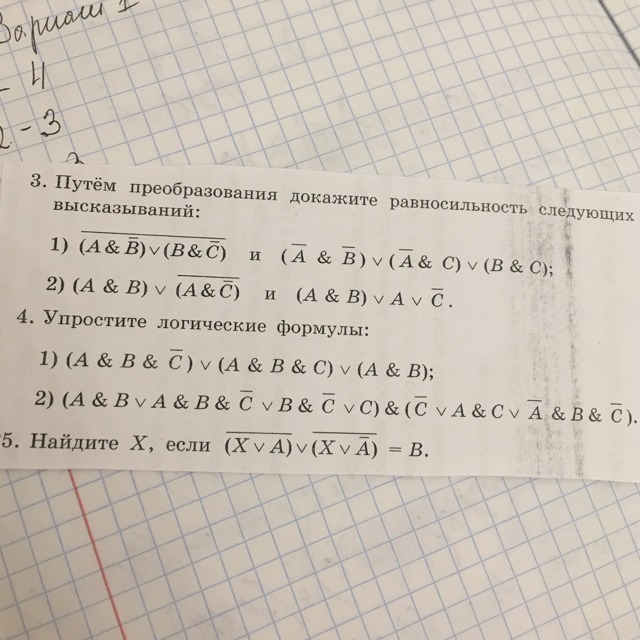 Вариант 1
- 4
2 - 3
3. Путём преобразования докажите равносильность следующих
высказываний:
1) (A & B̅)∨(B & C̅)̅ и (A̅ & B̅) ∨ (A̅ & C) ∨ (B & C);
2) (A & B) ∨ (A & C̅)̅ и (A & B) ∨ A ∨ C̅.
4. Упростите логические формулы:
1) (A & B & C̅) ∨ (A & B & C) ∨ (A & B);
2) (A & B ∨ A & B & C̅ ∨ B & C̅ ∨ C) & (C̅ ∨ A & C ∨ A̅ & B & C̅).
5. Найдите X, если (X ∨ A)̅ ∨ (X ∨ A̅)̅ = B.